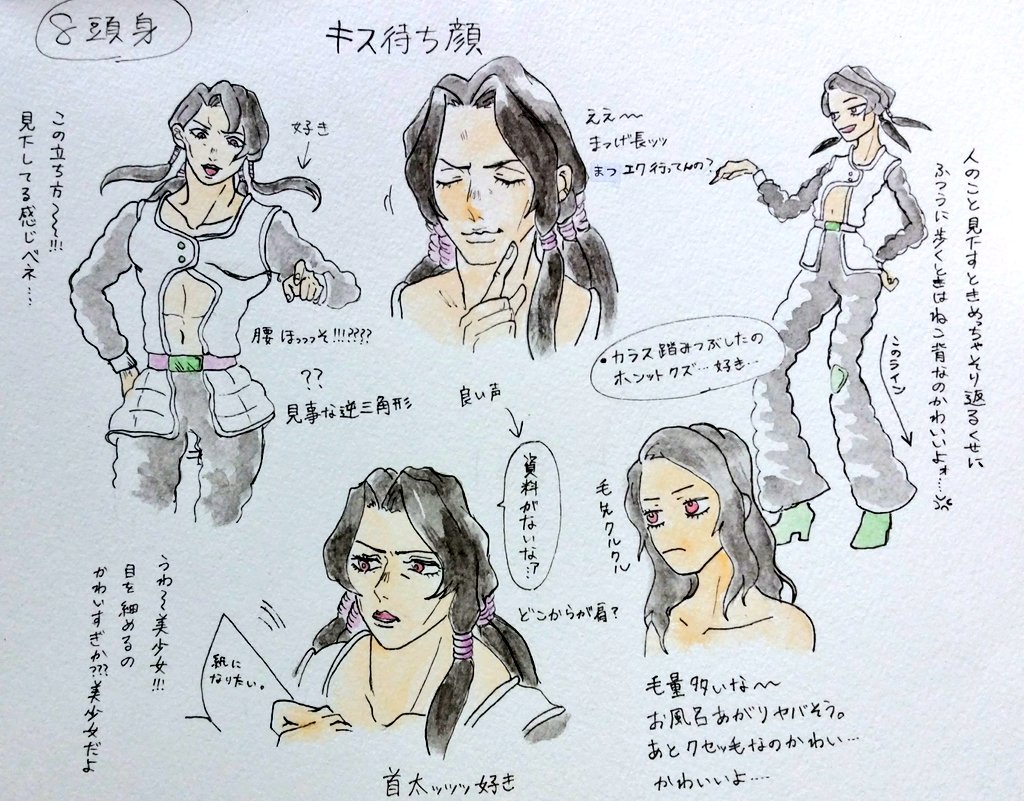 8頭身
キス待ち顔
この立ち方〜〜!!!
見下してる感じベネ…
好き
ええ〜
まつげ長ッッ
まつエク行ってんの?
人のこと見下すときめっちゃそり返るくせに
ふつうに歩くときはねこ背なのかわいいよォ…
このライン
・カラス踏みつぶしたの
ホンットクズ…好き…
腰ほっっっそ!!!????
??
見事な逆三角形
良い声
資料がないな…?
毛先クルクル
どこからが肩?
うわ〜美少女!!!
目を細めるの
かわいすぎか???美少女だよ
紙に
なりたい。
首太ッッッ好き
毛量多いな〜
お風呂あがりヤバそう。
あとクセッ毛なのかわい…
かわいいよ……